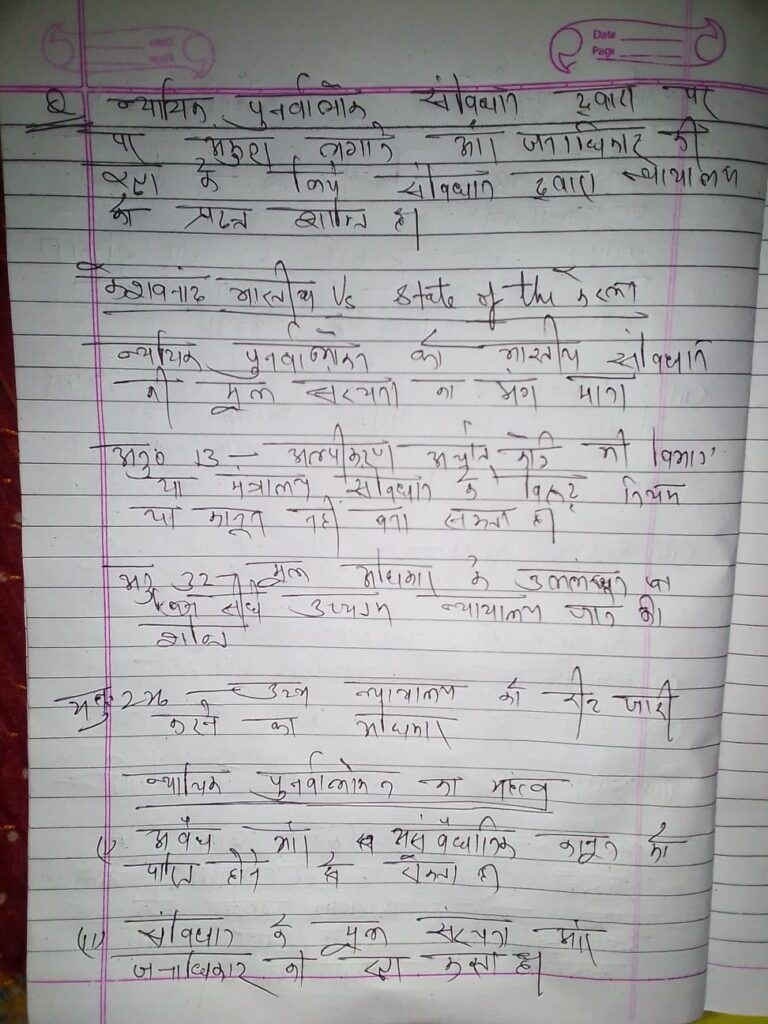 Date
Page
Q न्यायिक पुनर्वालोक संविधान द्वारा पर
पर अंकुश लगाने और जनाधिकार की
रक्षा के लिये संविधान द्वारा न्यायालय
को प्रदत्त शक्ति है।
केशवनांद भारतीय Vs State of the केरला
न्यायिक पुनर्वालोकन को भारतीय संविधान
की मूल संरचना का अंग माना
अनु० 13 — अल्पीकरण अर्थात् कोई भी विभाग
या मंत्रालय संविधान के विरूद्ध नियम
या कानून नहीं बना सकता है।
अनु 32 — मूल अधिकार के उल्लंघन पर
सीधे उच्चतम न्यायालय जाने की
शक्ति
अनु 226 — उच्च न्यायालय को रीट जारी
करने का अधिकार
न्यायिक पुनर्वालोकन का महत्व
(i) अवैध और असंवैधानिक कानून को
पारित होने से रोकता है।
(ii) संविधान के मूल संरचना और
जनाधिकार की रक्षा करता है।